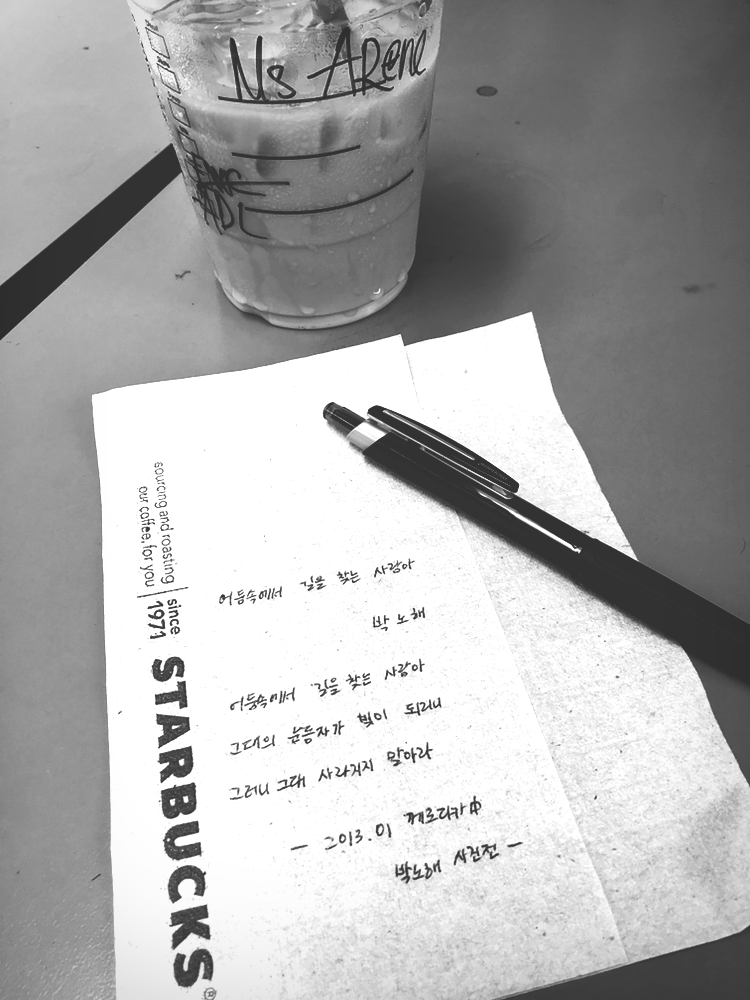 Ms ARene
ADL
sourcing and roasting
our coffee, for you
since
1971
STARBUCKS®
어둠속에서 길을 찾는 사람아
박 노해
어둠속에서 길을 찾는 사람아
그대의 눈동자가 빛이 되리니
그러니 그대 사라지지 말아라
— 2013.01 께로티카中
박노해 사진전 —